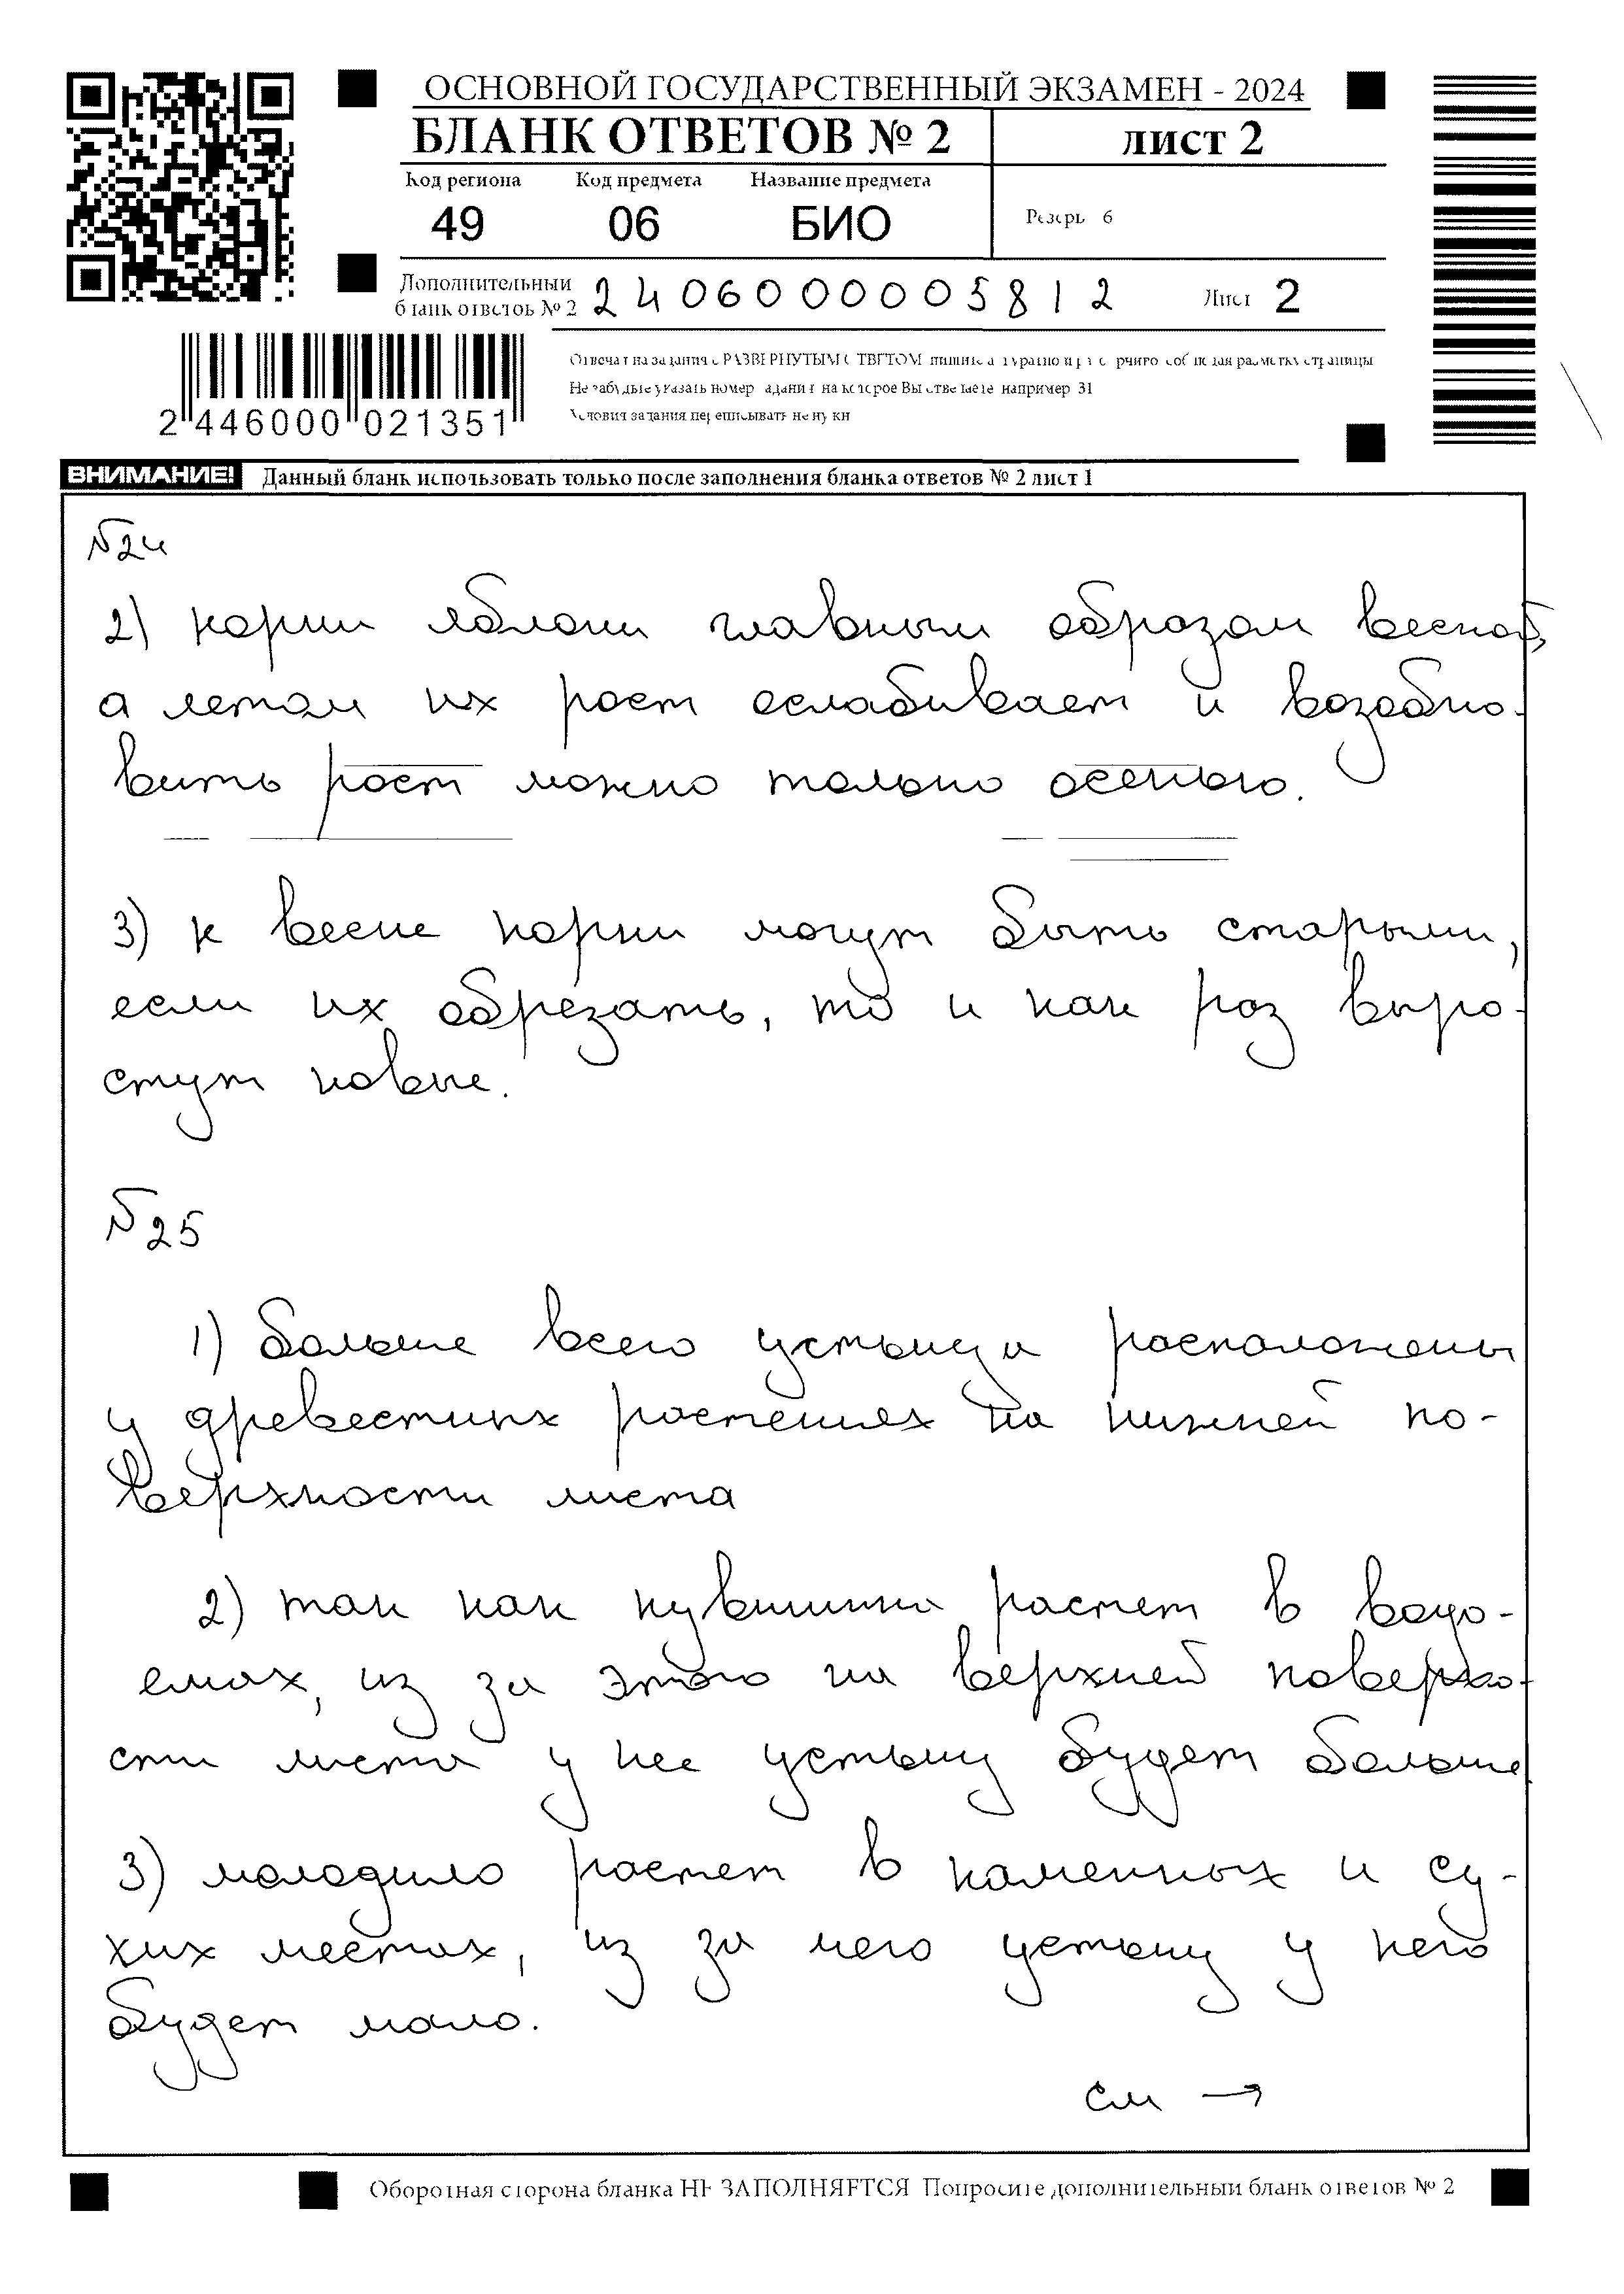 ОСНОВНОЙ ГОСУДАРСТВЕННЫЙ ЭКЗАМЕН - 2024
БЛАНК ОТВЕТОВ № 2
лист 2
Код региона Код предмета Название предмета
49 06 БИО
Резерв 6
Дополнительный
бланк ответов № 2
2406000005812
Лист 2
2 446000 021351
Отвечая на задания с РАЗВЕРНУТЫМ ОТВЕТОМ, пишите аккуратно и разборчиво, соблюдая разметку страницы
Не забудьте указать номер задания, на которое Вы отвечаете, например 31
Условия задания переписывать не нужно
ВНИМАНИЕ! Данный бланк использовать только после заполнения бланка ответов № 2 лист 1
№24
2) корни яблони главным образом весной,
а летом их рост ослабивает и возобно-
вить рост можно только осенью.
3) к весне корни могут быть старыми,
если их обрезать, то и как раз выро-
стут новые.
№25
1) больше всего устьица расположены
у древестных растениях на нижней по-
верхности листа
2) так как кувшинка растет в водо-
емах, из за этого на верхней поверхно-
сти листа у нее устьиц будет больше
3) молодило растет в каменных и су-
хих местах, из за чего устьиц у него
будет мало.
см →
Оборотная сторона бланка НЕ ЗАПОЛНЯЕТСЯ Попросите дополнительный бланк ответов № 2